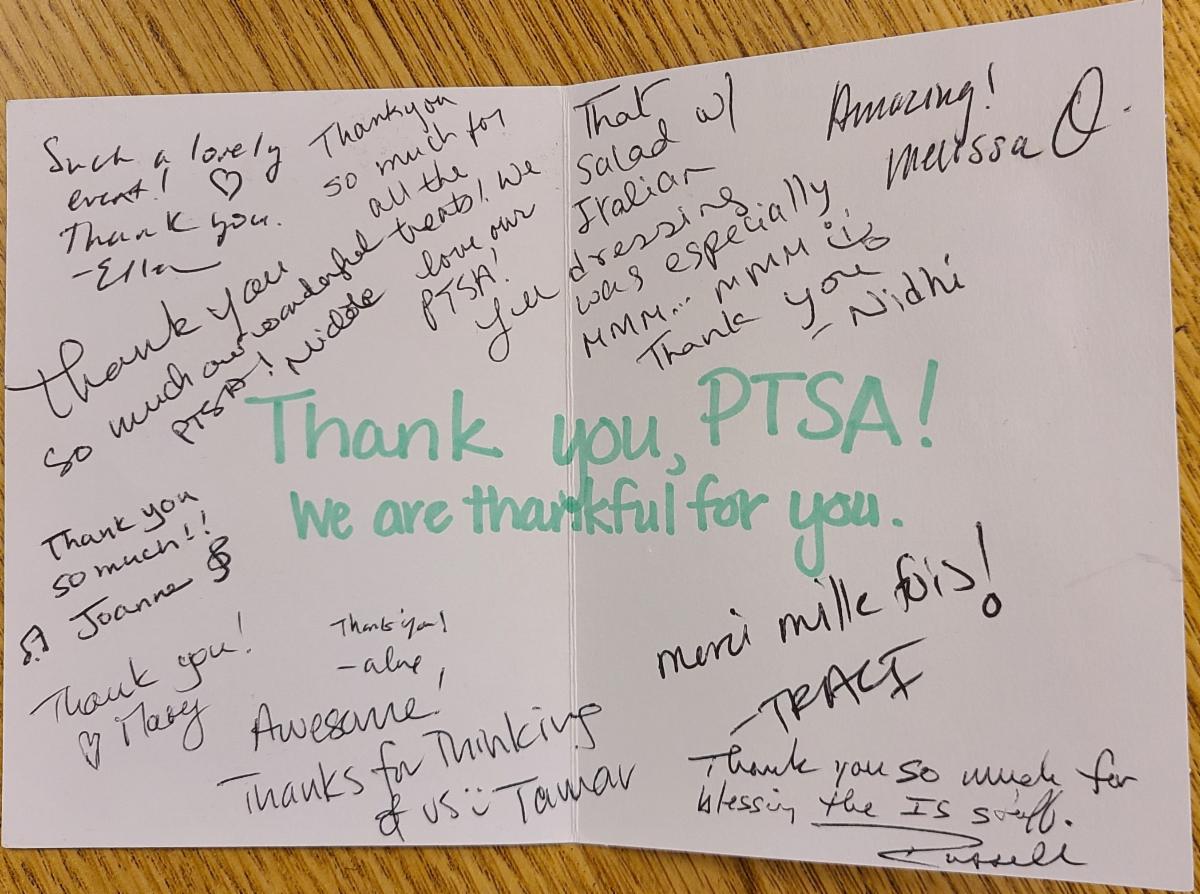 Such a lovely
event! ♡
Thank you.
-Ella
Thank you
so much for
all the
wonderful treats! We
love our
PTSA!
Thank you
so much our
PTSA! Nicole
That
Salad w/
Italian
dressing
was especially
MMM... MMM
Thank you
- Nidhi
Amazing!
Melissa O.
Thank you, PTSA!
We are thankful for you.
Thank you
so much!!
Joanne
Thank you!
♡ Mary
Thank you!
Awesome!
Thanks for Thinking
of us Tamar
merci mille fois!
-TRACI
Thank you so much for
blessing the IS staff.
Russell